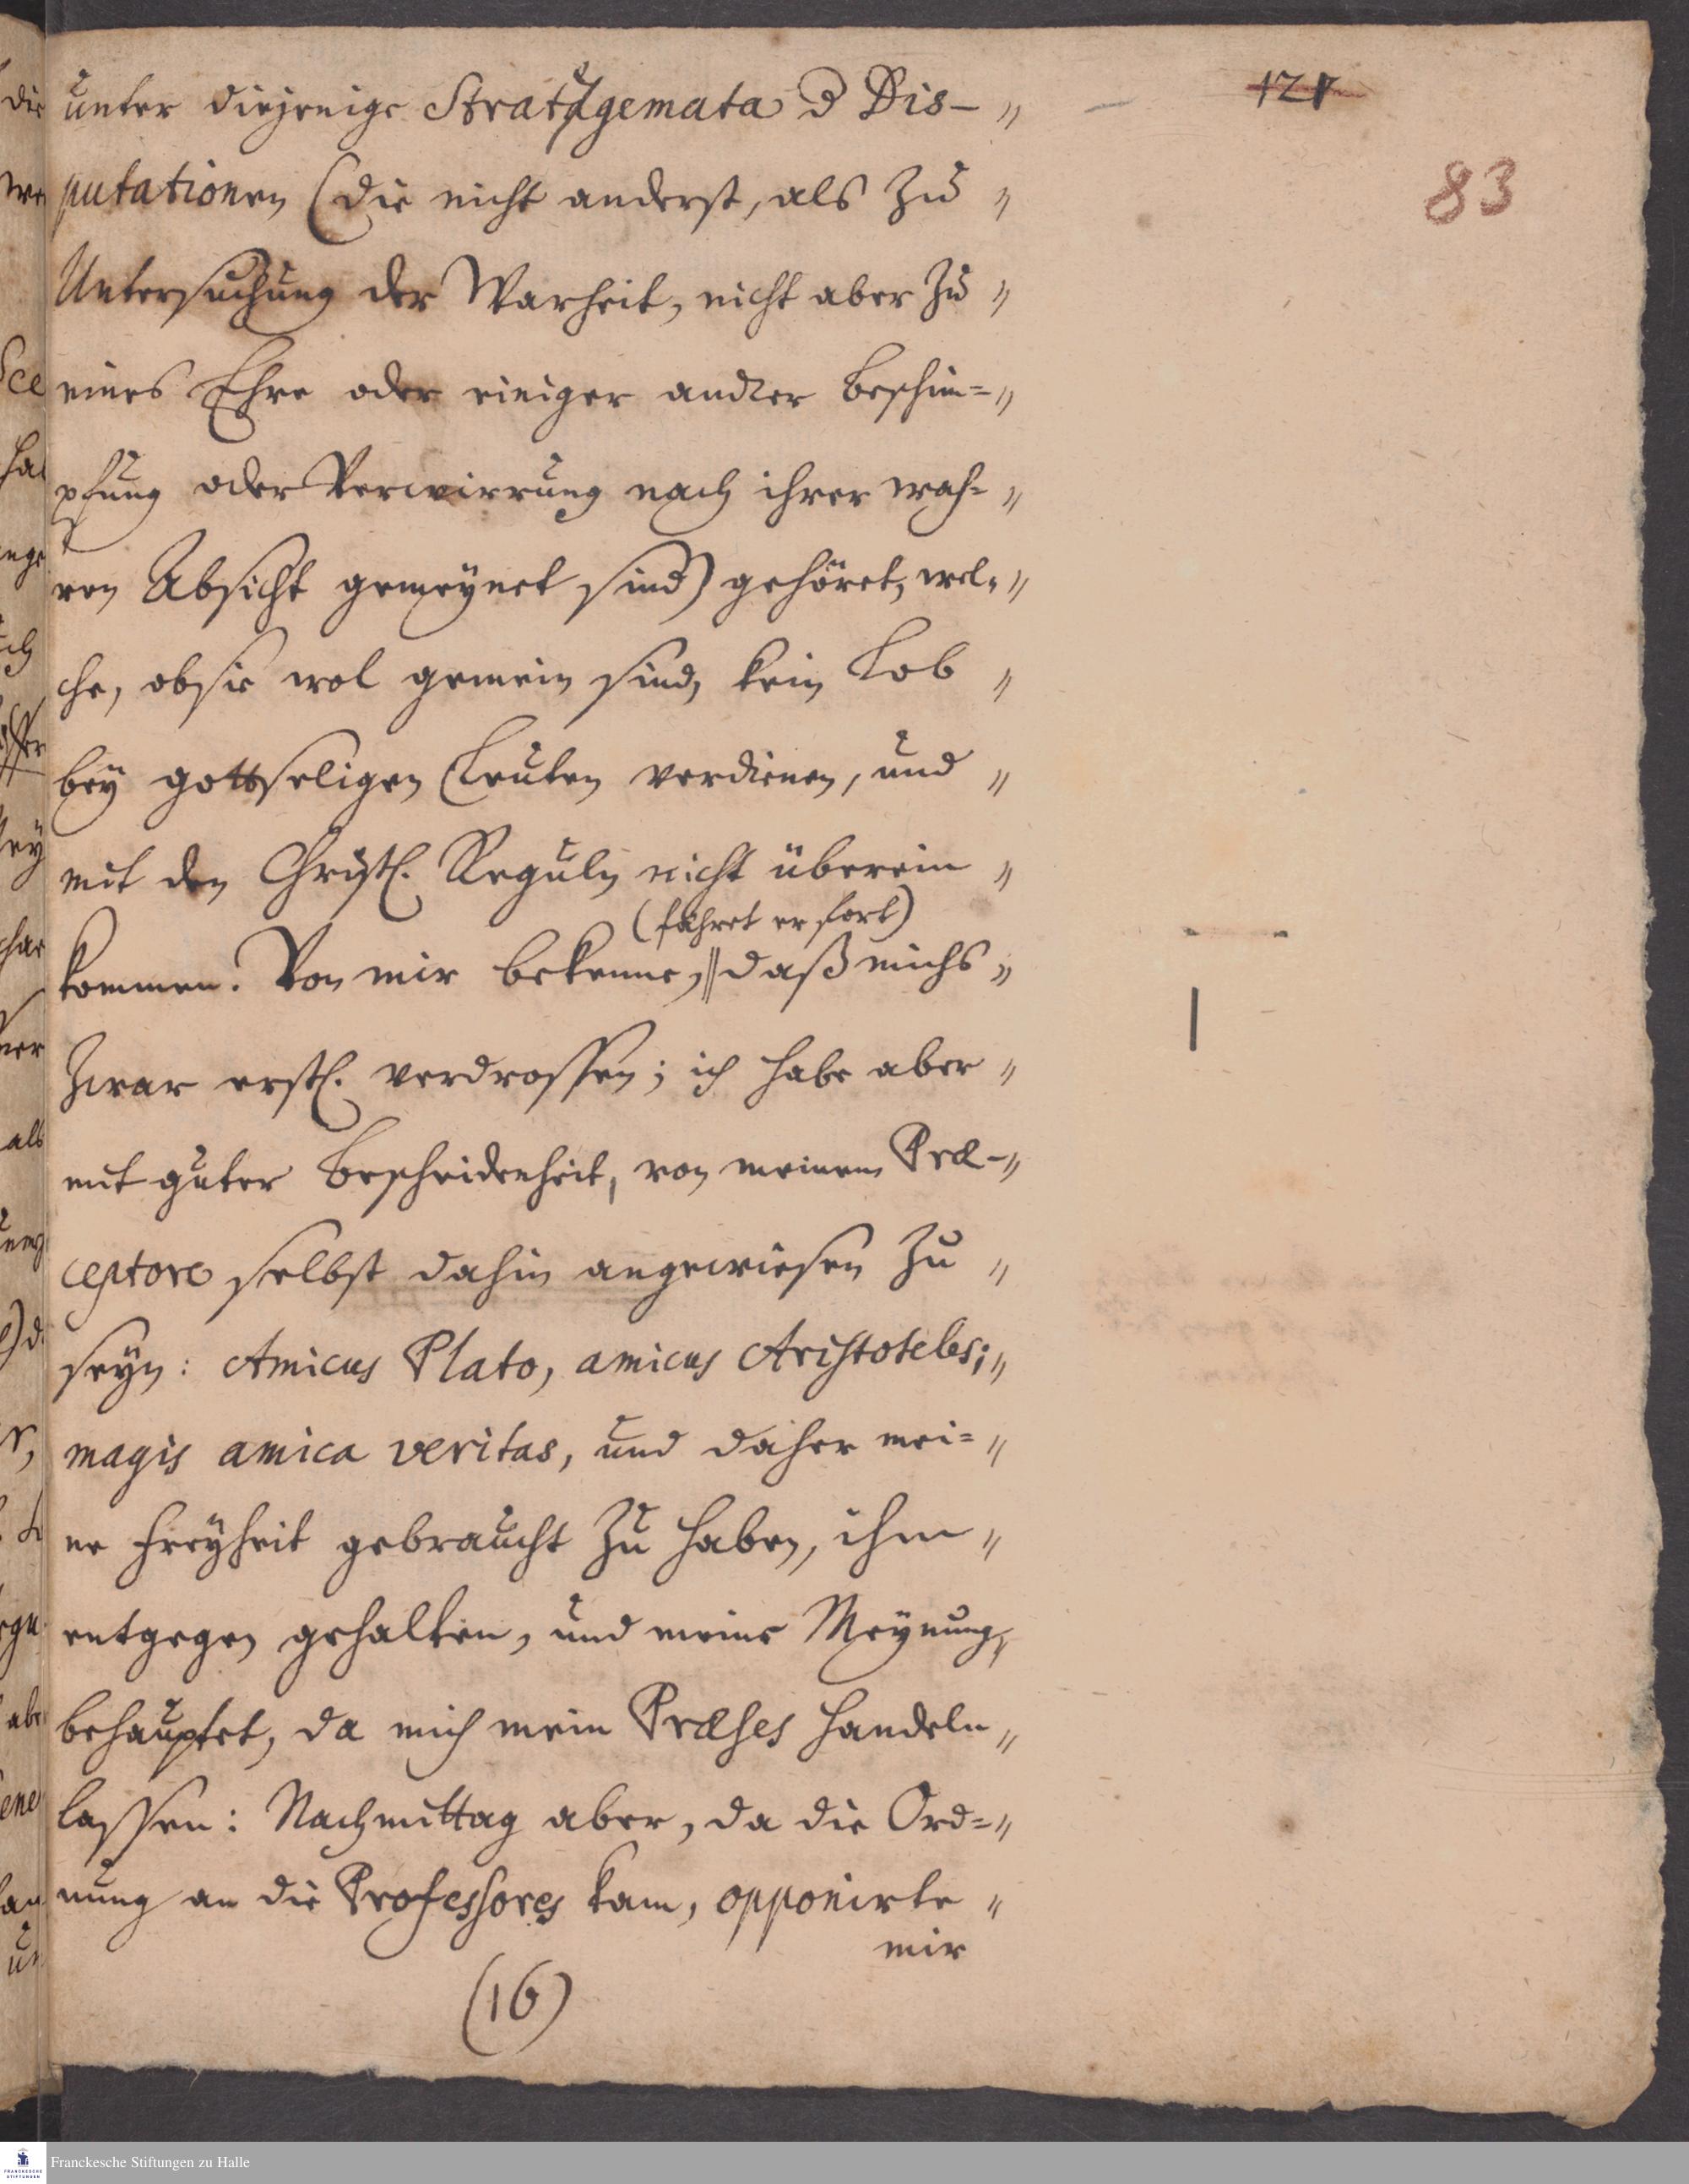 121
83
unter diejenige Stratagemata d Dis- "
putationen (die nicht anderst, als zu "
Untersuchung der Warheit, nicht aber zu "
eines Ehre oder einiger andrer beschim= "
pfung oder Verwirrung nach ihrer wah= "
ren Absicht gemeynet sind) gehöret, wel= "
che, ob sie wol gemein sind, kein Lob "
bey gottseligen Leuten verdienen, und "
mit den Christl. Reguln nicht überein "
(fähret er fort)
kommen. Von mir bekenne, || daß michs "
zwar erstl. verdrossen; ich habe aber "
mit guter bescheidenheit, von meinem Præ- "
ceptore selbst dahin angewiesen zu "
seyn: Amicus Plato, amicus Aristoteles; "
magis amica veritas, und daher mei= "
ne Freyheit gebraucht zu haben, ihm "
entgegen gehalten, und meine Meynung "
behauptet, da mich mein Præses handeln "
lassen: Nachmittag aber, da die Ord= "
nung an die Professores kam, opponirte "
mir
(16)
Franckesche Stiftungen zu Halle